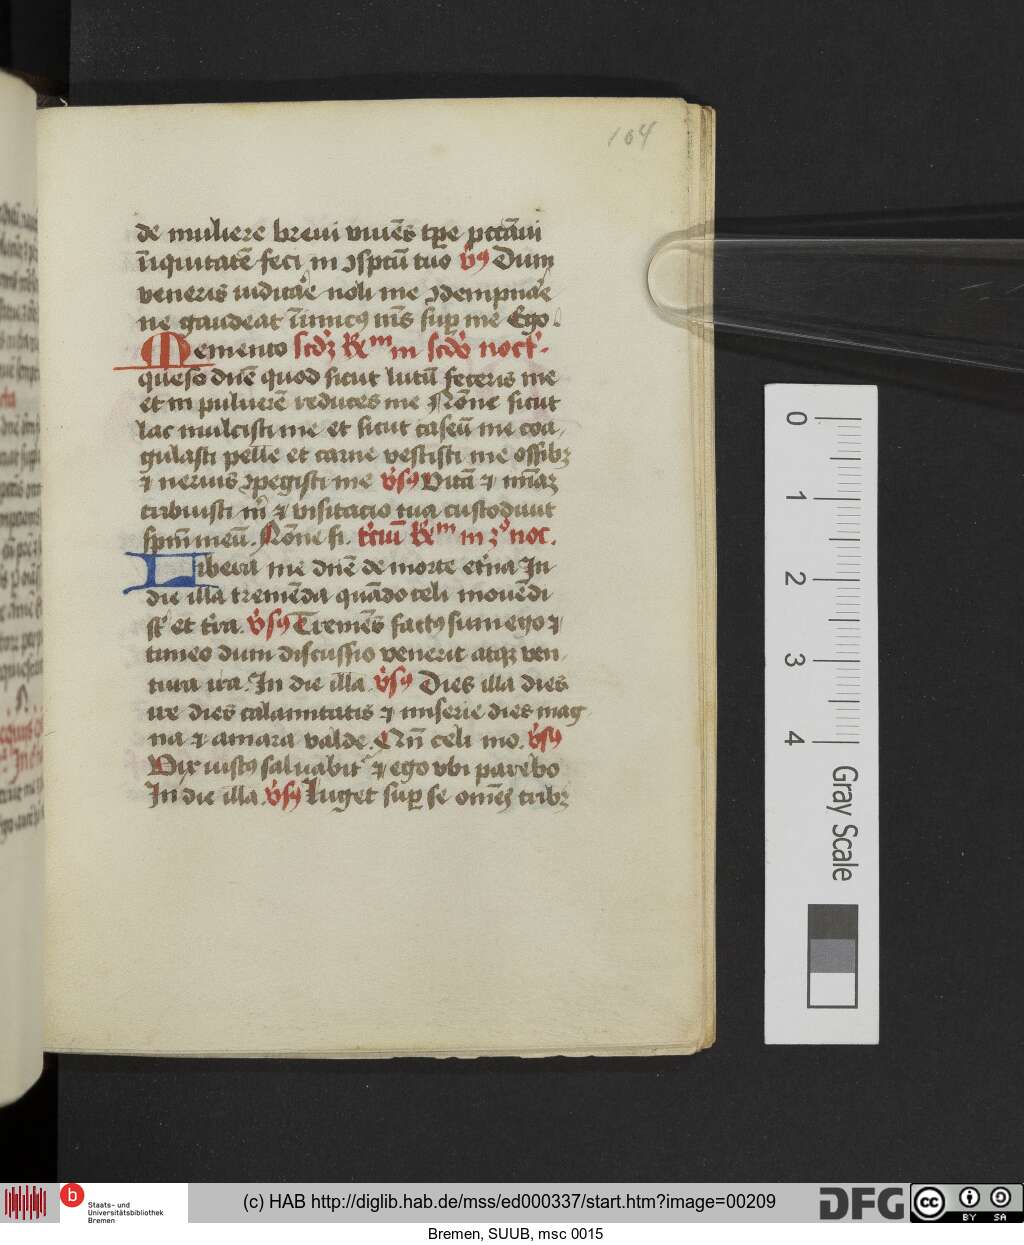 104
de muliere breui viuēs tꝑe pctāui
īiquitatē feci in ꝯspcū tuo v̉ꝯ Dum
veneris iudicāe noli me ꝯdempnāe
ne gaudeat īimicꝯ m̄s suꝑ me Ego.
Memento scd̓ꝫ ℟m in scd̓o noct̓.
queso dn̄e quod sicut lutū feceris me
et in puluerē reduces me Nōne sicut
lac mulcisti me et sicut caseū me coa
gulasti pelle et carne vestisti me ossibꝫ
⁊ neruis ꝯpegisti me v̓sꝯ Vitā ⁊ mīaꝫ
tribuisti m̓ ⁊ visitacio tua custodiuit
spm̄ meū. Nōne si. t̓ciū ℟m in 3o noc.
Libera me dn̄e de morte et̓na In
die illa tremēda quādo celi mouēdi
sr̄ et t̓ra. v̓sꝯ Tremēs factꝯ sum ego ⁊
timeo dum discussio venerit atqꝫ ven
tura ira. In die illa v̓sꝯ Dies illa dies
ire dies calamitatis ⁊ miserie dies mag
na ⁊ amara valde. Qn̄ celi mo. v̓sꝯ
Vix iustꝯ saluabit̓ ⁊ ego vbi parebo
In die illa v̓sꝯ Luget suꝑ se omēs tribꝫ
0
1
2
3
4
Gray Scale
b
Staats- und
Universitätsbibliothek
Bremen
(c) HAB http://diglib.hab.de/mss/ed000337/start.htm?image=00209
DFG
cc
BY SA
Bremen, SUUB, msc 0015